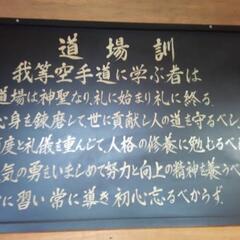 道場訓
我等空手道に学ぶ者は
道場は神聖なり、礼に始まり礼に終る。
心身を錬磨して世に貢献し人の道を守るべし
度と礼儀を重んじて人格の修養に勉むるべ
気の勇をいましめて努力と向上の精神を養うべ
に習い常に導き初心忘るべからず、